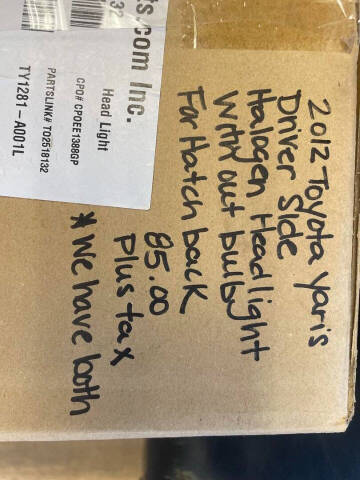 ts.com Inc.
Head Light
CPO# CPOEE1388GP
PARTSLINK# TO2518132
TY1281-A001L
2012 Toyota Yaris
Driver Side
Halogen Headlight
With out bulb
For Hatch back
85.00
Plus tax
*We have both